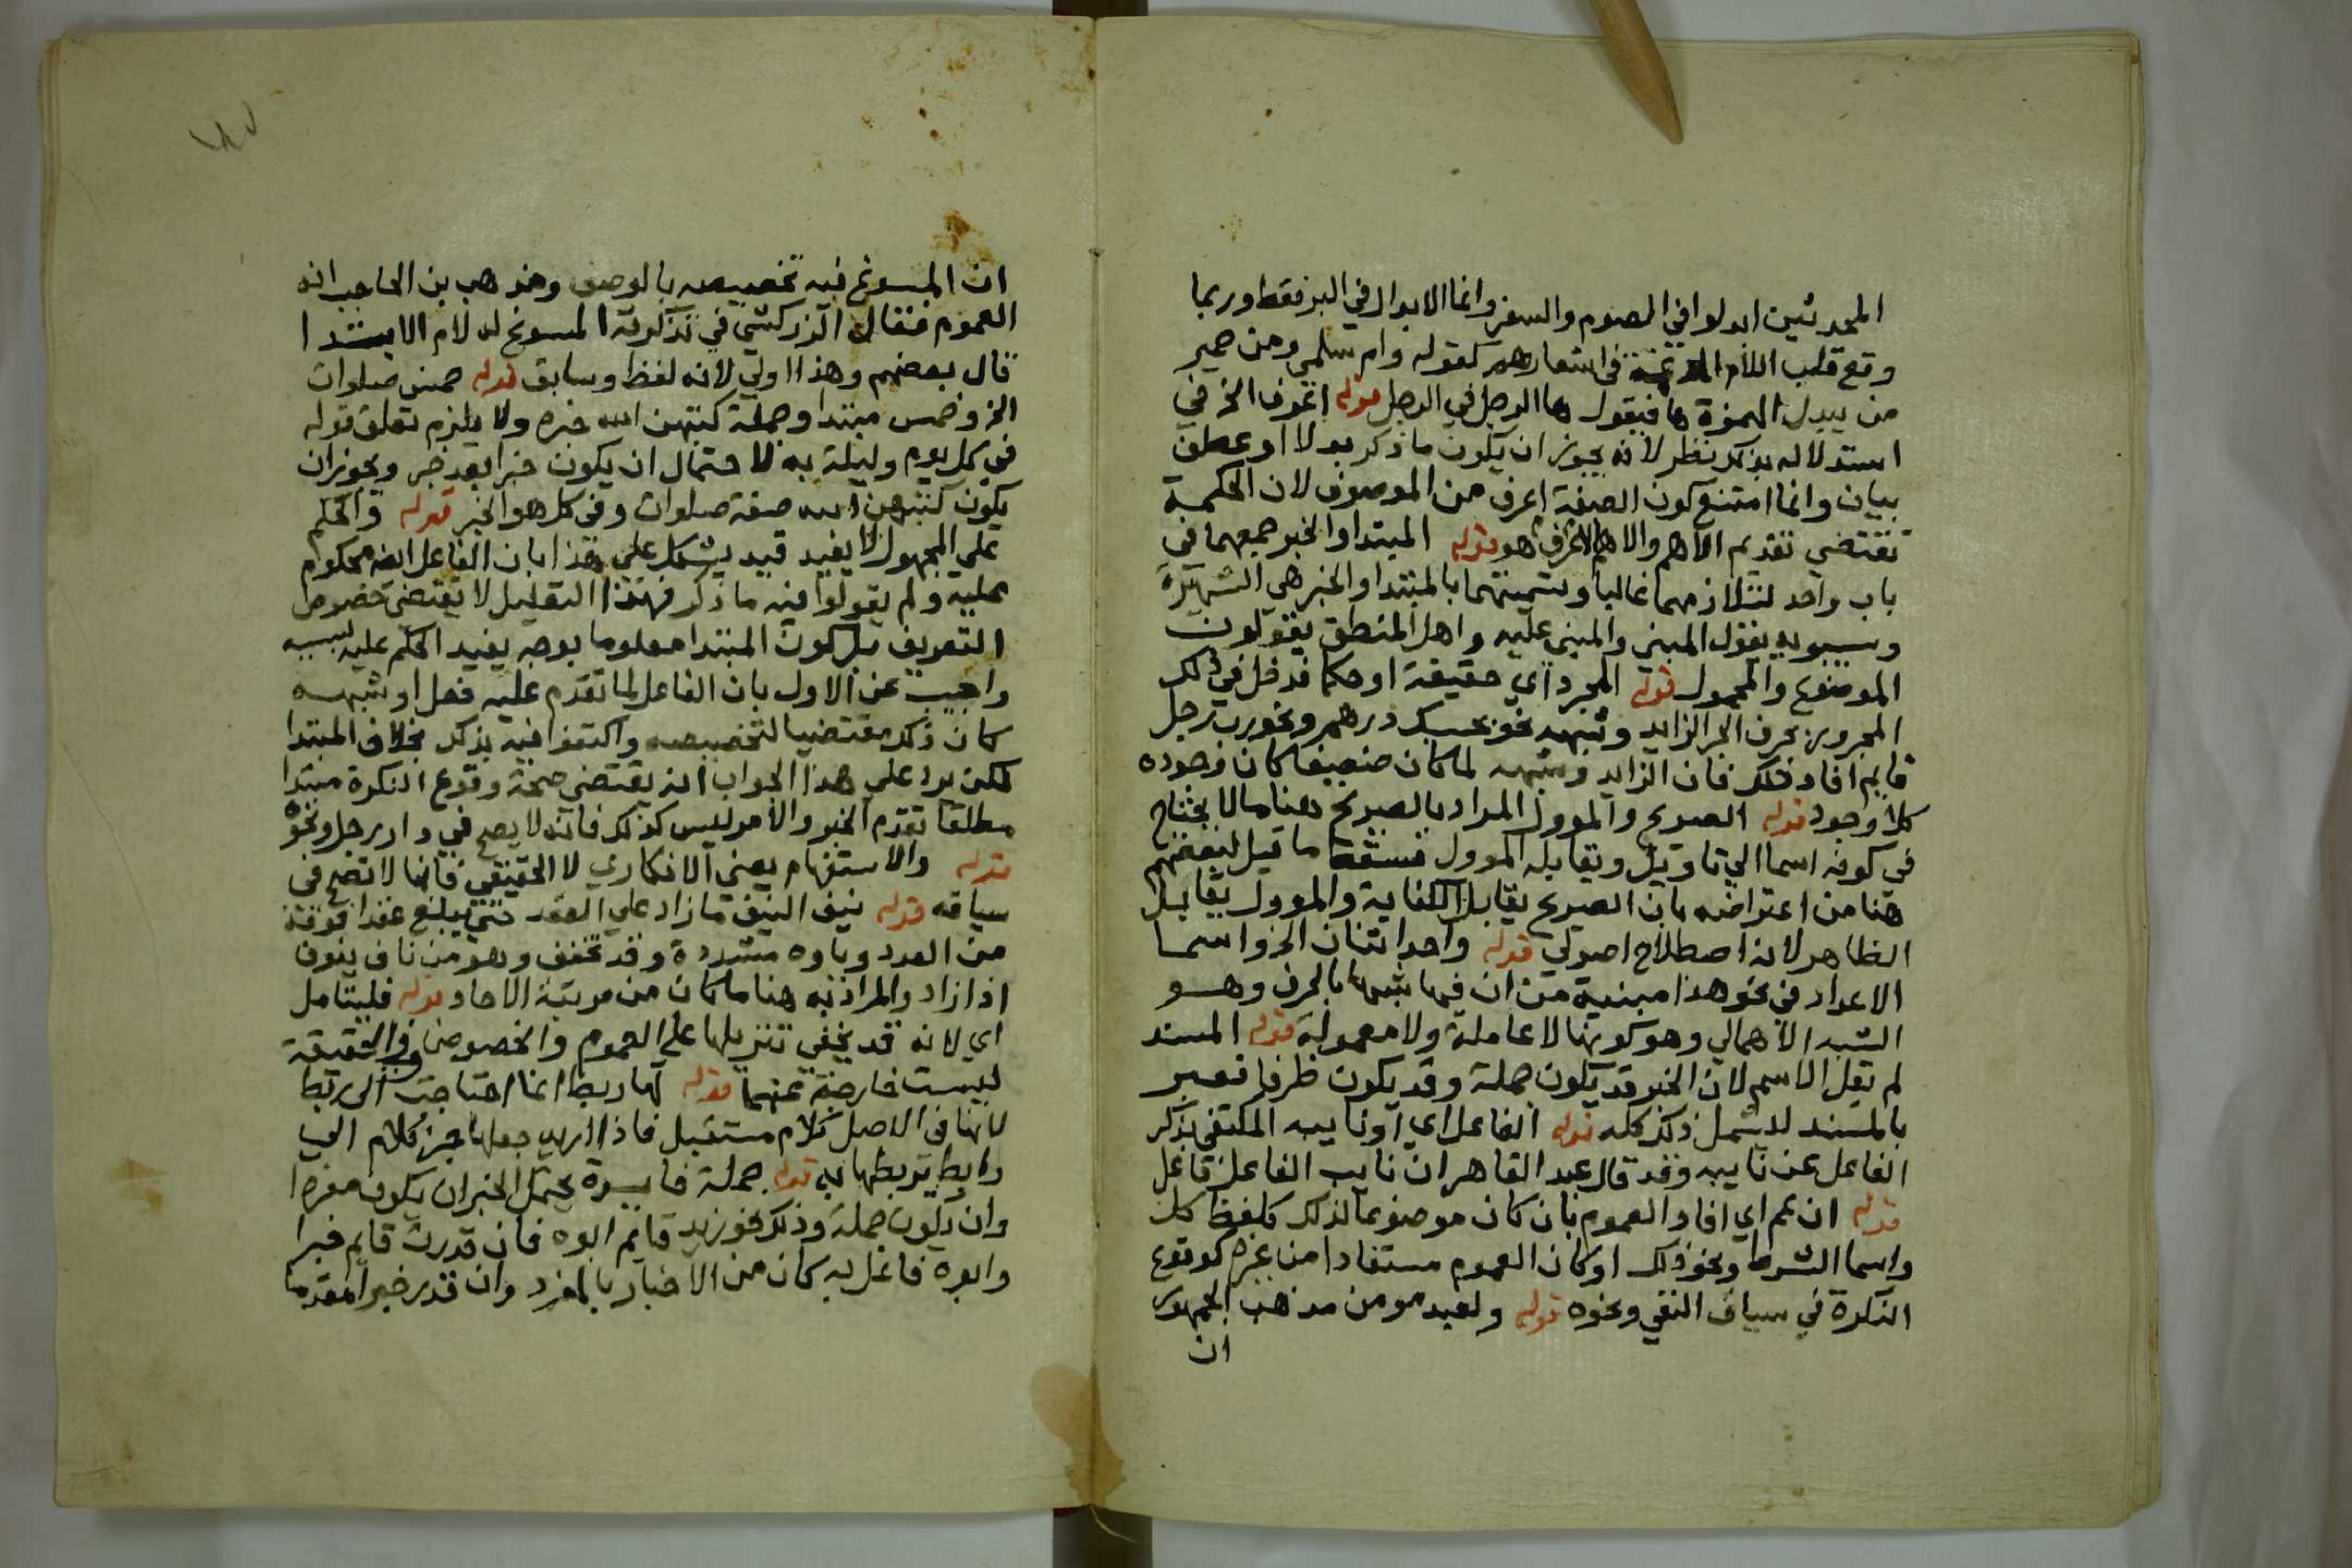 المحدثين ابدلوا في الصوم والسفر وانما الابدال في البر فقط وربما
وقع قلب اللام المدغمة في اشعارهم كقوله وام سلمي ومن حمير
من يبدل الهمزة ها فيقول ها الرجل في الرجل قوله اعرف الخ في
استدلاله بذلك نظر لانه يجوز ان يكون ما ذكر بدلا او عطف
بيان وانما امتنع كون الصفة اعرف من الموصوف لان الحكمة
تقتضي تقديم الاهم والاهم الاعرف هو قوله المبتدا والخبر جمعهما في
باب واحد لتلازمهما غالبا وتسميتهما بالمبتدا والخبر هي الشهيرة
وسيبويه يقول المبني والمبني عليه واهل المنطق يقولون
الموضوع والمحمول قوله المجرد اي حقيقة او حكما فدخل في ذلك
المجرور بحرف الجر الزايد وشبهه نحو بحسبك درهم ونحو رب رجل
قايم افاد ذلك فان الزايد وشبهه لما كان ضعيفا كان وجوده
كلا وجود قوله الصريح والموول المراد بالصريح هنا ما لا يحتاج
في كونه اسما الي تاويل ويقابله الموول فسقط ما قيل لبعضهم
هنا من اعتراضه بان الصريح يقابل الكناية والموول يقابل
الظاهر لانه اصطلاح اصولي قوله واحد اثنان الخ واسما
الاعداد في نحو هذا مبنية من ان فيها شبها بالحرف وهو
الشبه الاهمالي وهو كونها لا عاملة ولا معمولة قوله المسند
لم يقل الاسم لان الخبر قد يكون جملة وقد يكون ظرفا فعبر
بالمسند ليشمل ذلك كله قوله الفاعل اي او نايبه المكتفي بذكر
الفاعل عن نايبه وقد قال عبد القاهر ان نايب الفاعل فاعل
قوله ان عم اي افاد العموم بان كان موضوعا لذلك كلفظ كل
واسما الشرط ونحو ذلك او كان العموم مستفادا من غيره كوقوع
النكرة في سياق النفي ونحوه قوله ولعبد مومن مذهب الجمهور
ان
ان المسوغ فيه تخصيصه بالوصف ومذهب بن الحاجب انه
العموم فقال الزركشي في تذكرته المسوغ له لام الابتدا
قال بعضهم وهذا اولي لانه لفظ وسابق قوله خمس صلوات
الخ وخمس مبتدا وجملة كتبهن الله خبره ولا يلزم تعلق قوله
في كل يوم وليلة به لاحتمال ان يكون خبرا بعد خبر ويجوز ان
يكون كتبهن الله صفة صلوات وفي كل هو الخبر قوله والحكم
علي المجهول لا يفيد قيد يشكل علي هذا بان الفاعل ايضا محكوم
عليه ولم يقولوا فيه ما ذكر فهذا التعليل لا يقتضي خصوص
التعريف بل كون المبتدا معلوما بوجه يفيد الحكم عليه بسببه
واجيب عن الاول بان الفاعل لما تقدم عليه فعل او شبهه
كان ذلك مقتضيا لتخصيصه واكتفوا فيه بذلك بخلاف المبتدا
لكن يرد علي هذا الجواب انه يقتضي صحة وقوع النكرة مبتدا
مطلقا تقدم الخبر والامر ليس كذلك فانه لا يصح في دار رجل ونحوه
قوله والاستفهام يعني الانكاري لا الحقيقي فانها لا تصح في
سياقه قوله نيف النيف ما زاد علي العقد حتي يبلغ عقدا فوقه
من العدد وياوه مشددة وقد تخفف وهو من ناف ينوف
اذا زاد والمراد به هنا ما كان من مرتبة الاحاد قوله فليتامل
اي لانه قد يخفي تنزيلها علي العموم والخصوص وفي الحقيقة
ليست خارجة عنهما قوله لها ربط انما احتاجت الي ربط
لانها في الاصل كلام مستقبل فاذا اريد جعلها جزء كلام الي
رابط يربطها به قوله جملة فايدة يحتمل الخبر ان يكون مفردا
وان يكون جملة وذلك نحو زيد قايم ابوه فان قدرت قايم خبرا
وابوه فاعل به كان من الاخبار بالمفرد وان قدر خبرا مقدما